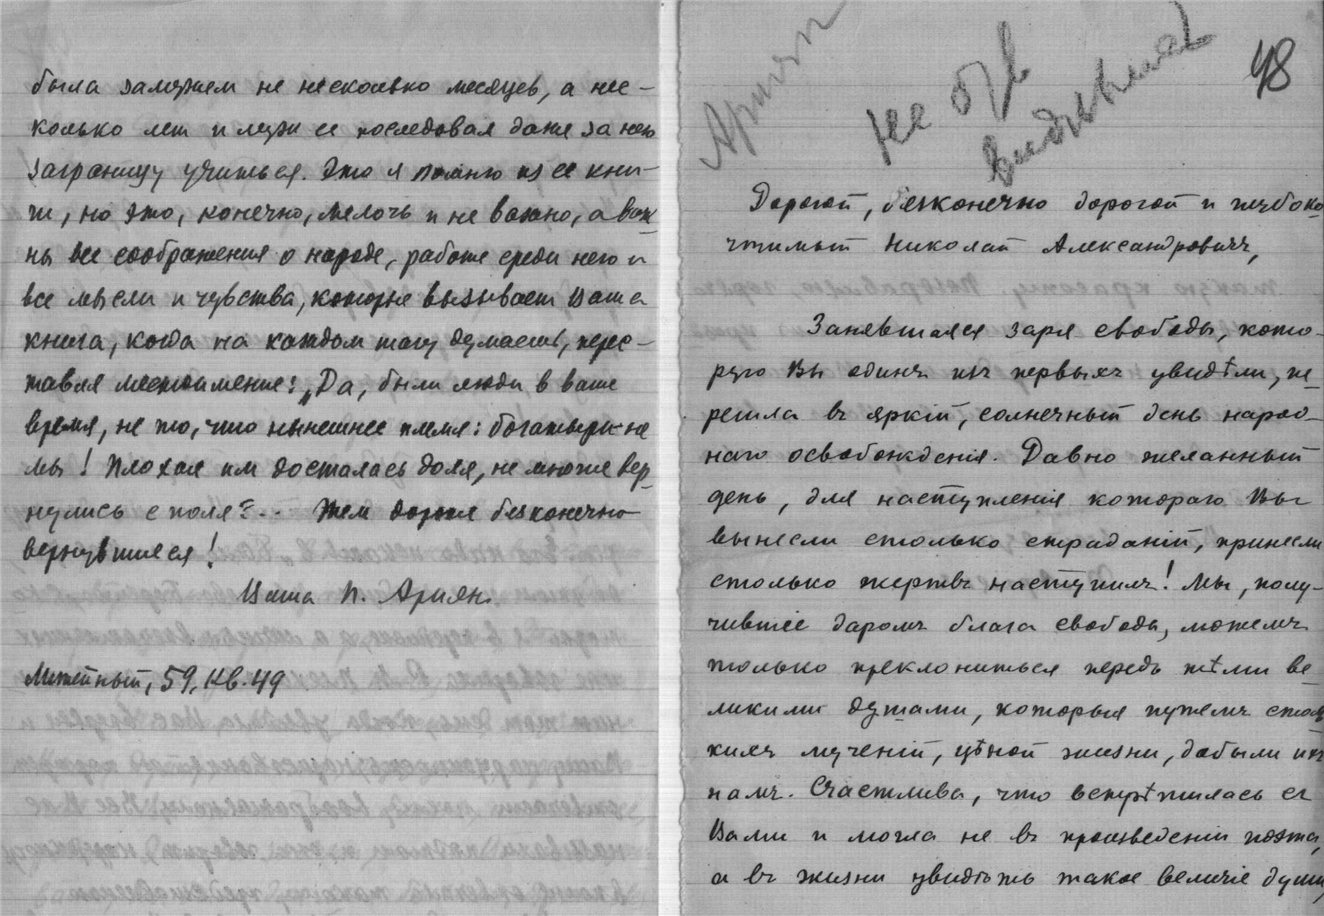 была замужем не несколько месяцев, а нес-
колько лет и муж ее последовал даже за нею
заграницу учиться. Это я помню из ее кни-
ги, но это, конечно, мелочь и не важно, а важ
ны все соображения о народе, работе среди него и
все мысли и чувства, которые вызывает Ваша
книга, когда на каждом шагу думаешь, перес-
тавляя местоимения: „Да, были люди в ваше
время, не то, что нынешнее племя: богатыри не
мы! Плохая им досталась доля, не многие вер
нулись с поля"... Тем дороже бесконечно
вернувшиеся!
Ваша П. Ариян.
Литейный, 59, кв. 49
Ариян
не отв
виделись
48
Дорогой, безконечно дорогой и глубоко
чтимый Николай Александровичъ,
Занявшаяся заря свободы, кото-
рую Вы одинъ изъ первыхъ увидѣли, пе
решла въ яркій, солнечный день народ-
наго освобожденія. Давно желанный
день, для наступленія котораго Вы
вынесли столько страданій, принесли
столько жертвъ наступилъ! Мы, полу-
чившіе даромъ блага свободы, можемъ
только преклониться передъ тѣми ве
ликими душами, которыя путемъ столь
кихъ мученій, цѣной жизни, добыли ихъ
намъ. Счастлива, что встрѣтилась съ
Вами и могла не въ произведеніи поэта,
а въ жизни увидѣть такое величіе души,